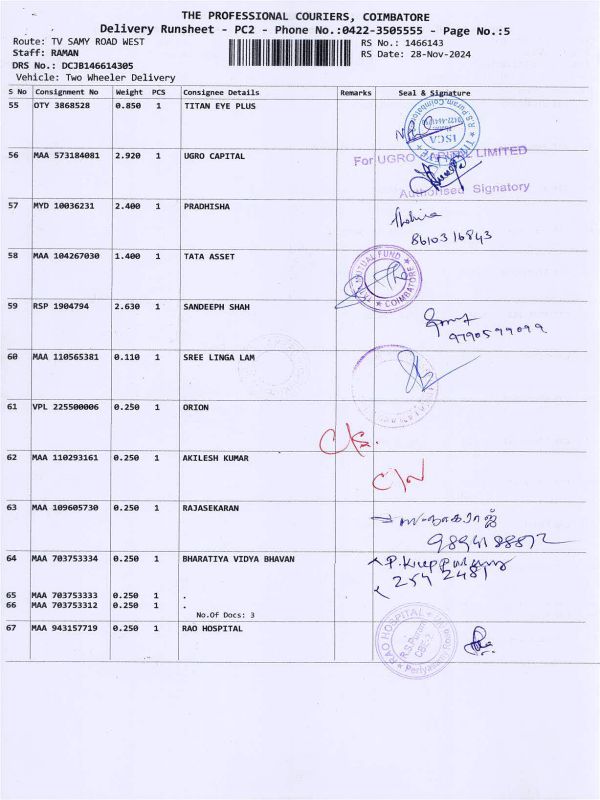 THE PROFESSIONAL COURIERS, COIMBATORE
Delivery Runsheet - PC2 - Phone No.:0422-3505555 - Page No.:5
Route: TV SAMY ROAD WEST RS No.: 1466143
Staff: RAMAN RS Date: 28-Nov-2024
DRS No.: DCJB146614305
Vehicle: Two Wheeler Delivery
S No Consignment No Weight PCS Consignee Details Remarks Seal & Signature
55 OTY 3868528 0.850 1 TITAN EYE PLUS
56 MAA 573184081 2.920 1 UGRO CAPITAL
For UGRO CAPITAL LIMITED
Authorised Signatory
57 MYD 10036231 2.400 1 PRADHISHA
8610316843
58 MAA 104267030 1.400 1 TATA ASSET
MUTUAL FUND
COIMBATORE
59 RSP 1904794 2.630 1 SANDEEPH SHAH
9790599099
60 MAA 110565381 0.110 1 SREE LINGA LAM
61 VPL 225500006 0.250 1 ORION
62 MAA 110293161 0.250 1 AKILESH KUMAR
63 MAA 109605730 0.250 1 RAJASEKARAN
64 MAA 703753334 0.250 1 BHARATIYA VIDYA BHAVAN
254 2481
65 MAA 703753333 0.250 1 .
66 MAA 703753312 0.250 1 .
No.Of Docs: 3
67 MAA 943157719 0.250 1 RAO HOSPITAL
RAO HOSPITAL
R.S.Puram
CBE-2